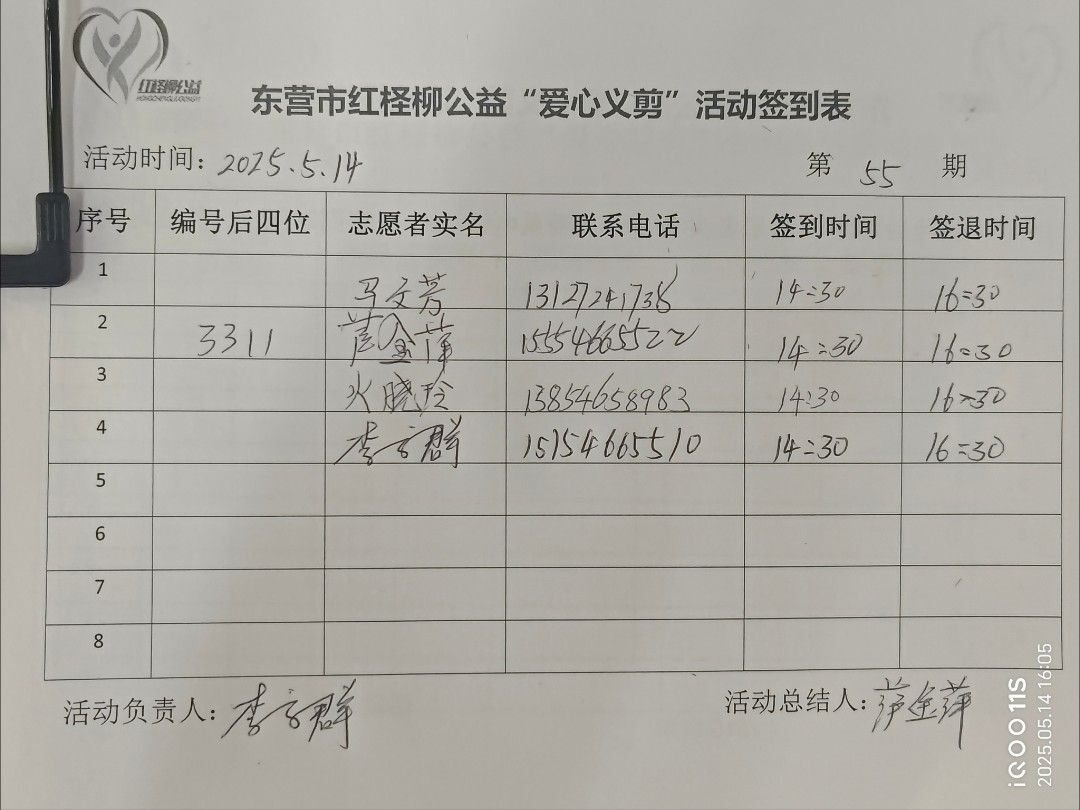 红柽柳公益
HONGCHENGLIUGONGYI
东营市红柽柳公益“爱心义剪”活动签到表
活动时间：2025.5.14 第 55 期
序号 编号后四位 志愿者实名 联系电话 签到时间 签退时间
1 马文芳 13127241738 14:30 16:30
2 3311 金萍 15554665522 14:30 16:30
3 火晓玲 13854658983 14:30 16:30
4 李方群 15154665510 14:30 16:30
5
6
7
8
活动负责人：李方群 活动总结人：金萍
iQOO 11S
2025.05.14 16:05